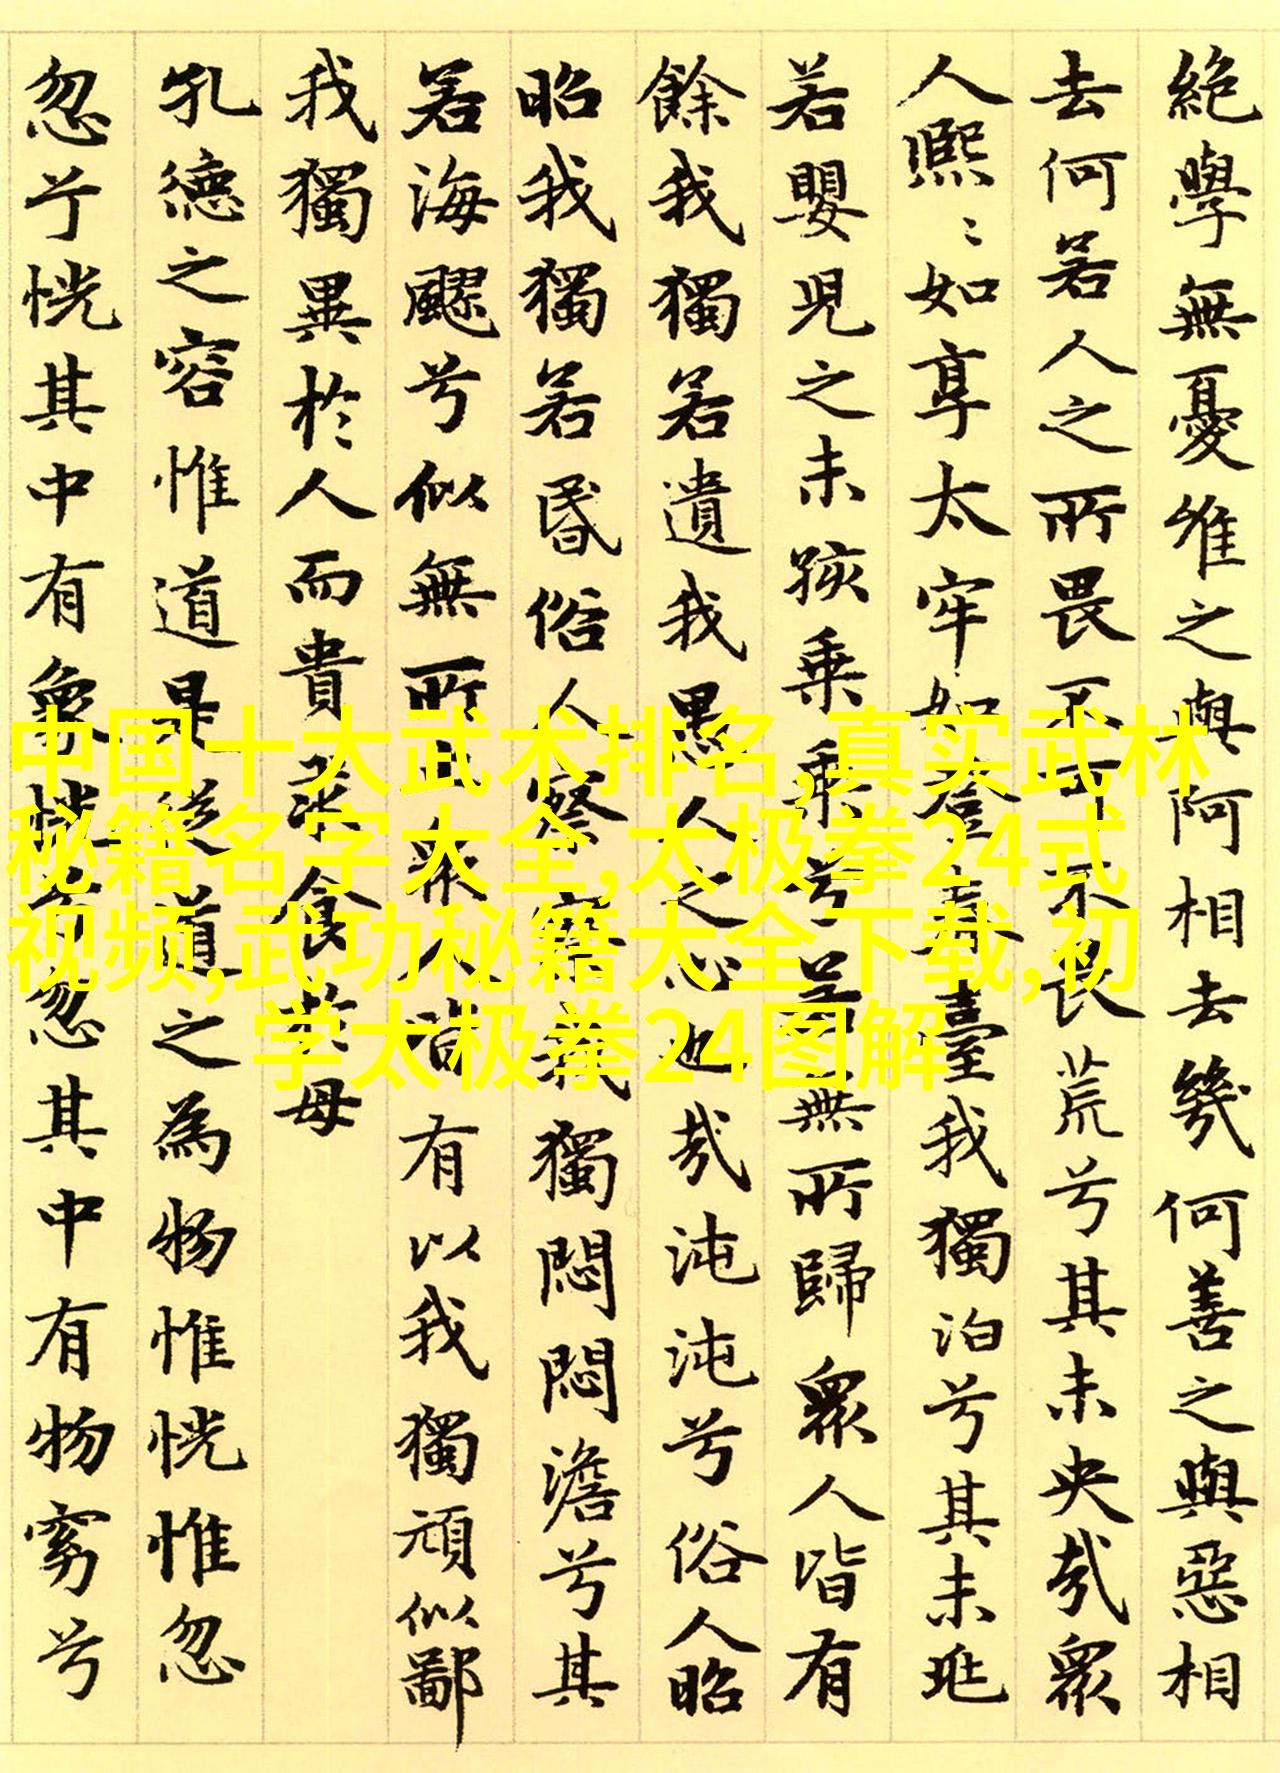 絶學無憂唯之與阿相去幾何善之與惡相
去何若人之所畏不可不畏荒兮其未央哉衆
人熙〻如享太牢如登春臺我獨泊兮其未兆
若嬰兒之未孩乗乗兮若無所歸衆人皆有
餘我獨若遺我愚人之心也哉沌沌兮俗人昭
昭我獨若昬俗人察察我獨悶悶澹兮其
若海飂兮似無所止衆人皆有以我獨頑似鄙
我獨異於人而貴求食於母
孔德之容惟道是從道之為物惟恍惟忽
忽兮恍其中有象恍兮忽其中有物窈兮
中国十大武术排名,真实武林
秘籍名字大全,太极拳24式
视频,武功秘籍大全下载,初
学太极拳24图解